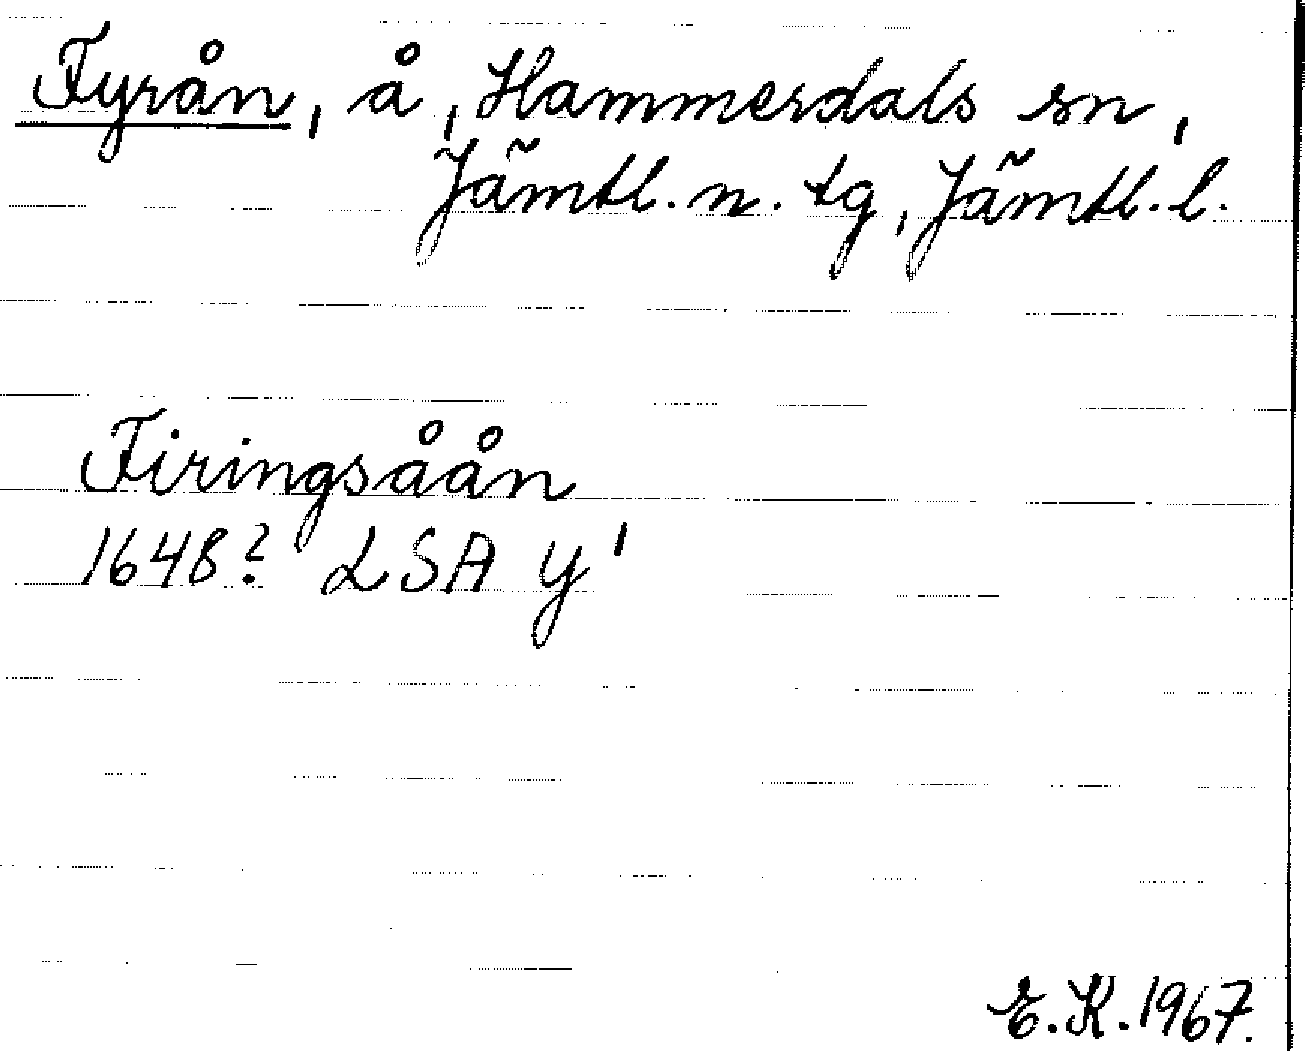 Fyrån, å, Hammerdals sn,
Jämtl. n. tg, Jämtl. l.
Firingsåån
1648? LSA Y'
E.K. 1967.